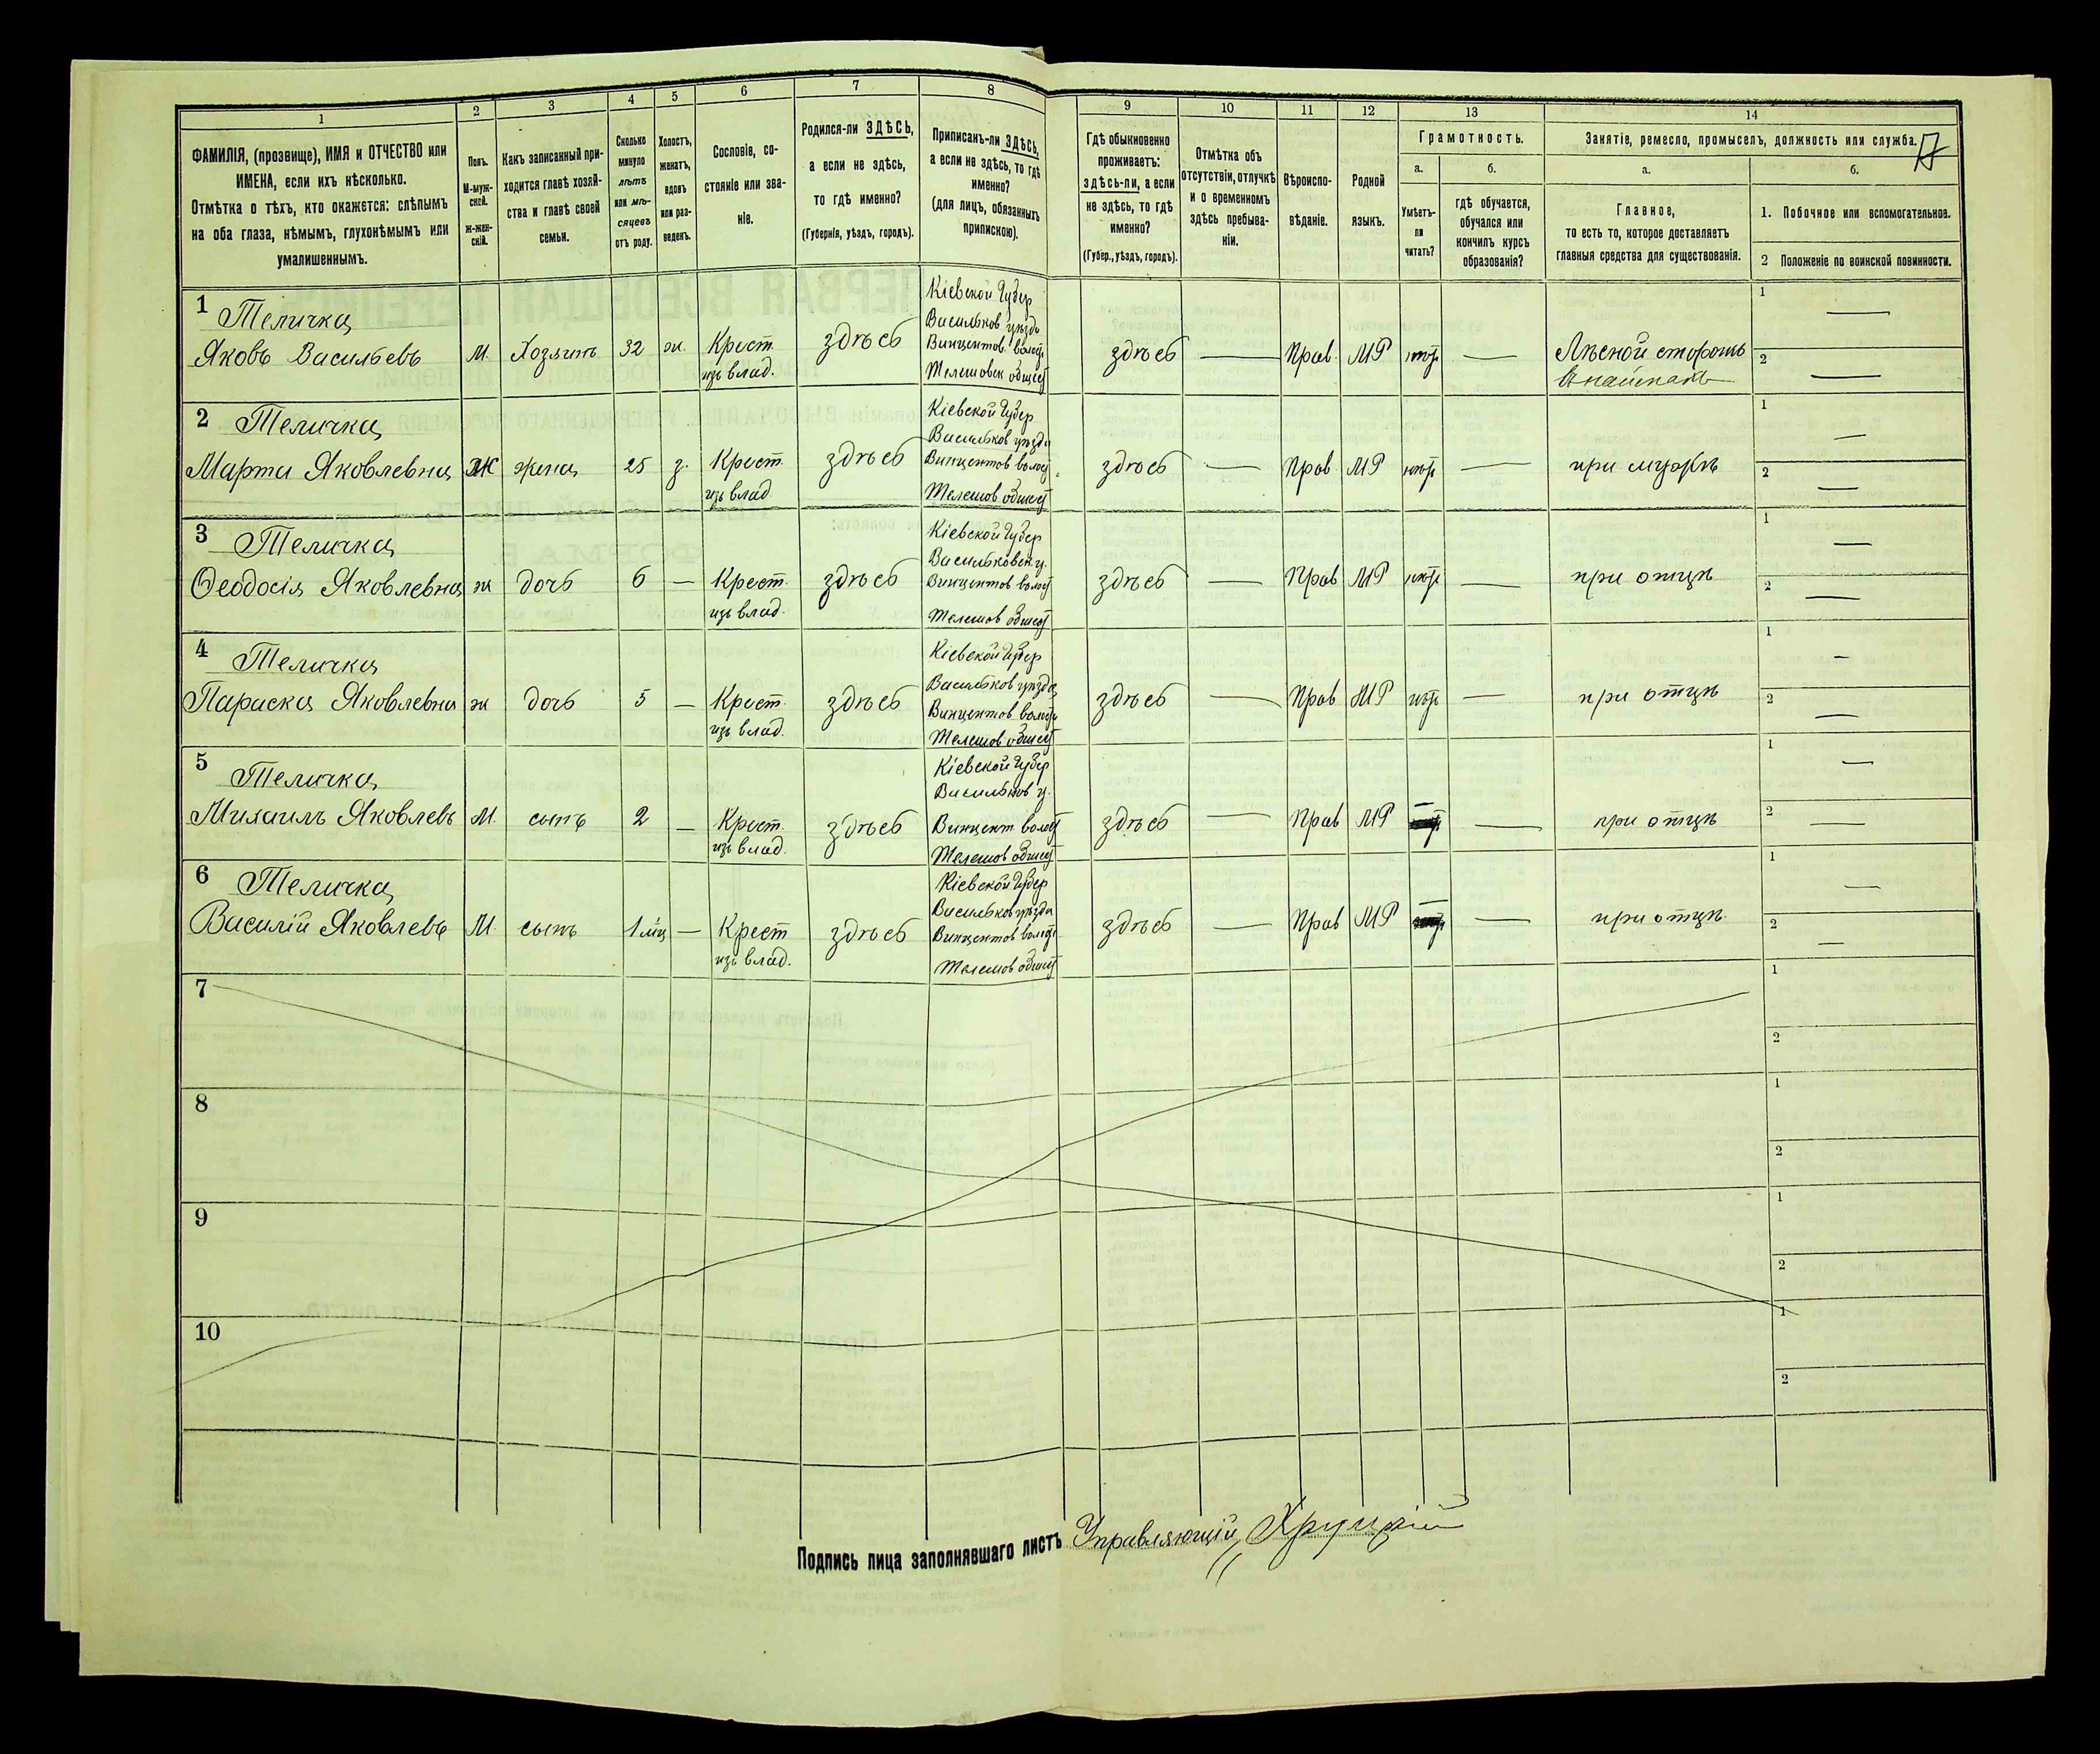 1 2 3 4 5 6 7 8 9 10 11 12 13 14
ФАМИЛІЯ, (прозвище), ИМЯ и ОТЧЕСТВО или
ИМЕНА, если ихъ нѣсколько.
Отмѣтка о тѣхъ, кто окажется: слѣпымъ
на оба глаза, нѣмымъ, глухонѣмымъ или
умалишеннымъ.
Полъ.
М-муж-
ской.
Ж-жен-
скій.
Какъ записанный при-
ходится главѣ хозяй-
ства и главѣ своей
семьи.
Сколько
минуло
лѣтъ
или мѣ-
сяцевъ
отъ роду.
Холостъ,
женатъ,
вдовъ
или раз-
веденъ.
Сословіе, со-
стояніе или зва-
ніе.
Родился-ли ЗДѢСЬ,
а если не здѣсь,
то гдѣ именно?
(Губернія, уѣздъ, городъ).
Приписанъ-ли ЗДѢСЬ,
а если не здѣсь, то гдѣ
именно?
(для лицъ, обязанныхъ
припискою).
Гдѣ обыкновенно
проживаетъ:
здѣсь-ли, а если
не здѣсь, то гдѣ
именно?
(Губер., уѣздъ, городъ).
Отмѣтка объ
отсутствіи, отлучкѣ
и о временномъ
здѣсь пребыва-
ніи.
Вѣроиспо-
вѣданіе.
Родной
языкъ.
Грамотность.
а.
Умѣетъ-
ли
читать?
б.
гдѣ обучается,
обучался или
кончилъ курсъ
образованія?
Занятіе, ремесло, промыселъ, должность или служба.
а.
Главное,
то есть то, которое доставляетъ
главныя средства для существованія.
б.
1. Побочное или вспомогательное.
2 Положеніе по воинской повинности.
1 Теличка
Яковъ Васильевъ М. Хозяинъ 32 ж. Крест. изъ влад. здѣсь
Кіевской Губер
Васильков уѣзда
Винцентов. волост
Телешовск общест
здѣсь — Прав. МР — Лѣсной сторожъ
1 —
2 —
2 Теличка
Марта Яковлевна Ж жена 25 з. Крест. изъ влад здѣсь
Кіевской Губер
Васильков уѣзда
Винцентов волост
Телешов общест
здѣсь — Прав МР — при мужѣ
1 —
2 —
3 Теличка
Ѳеодосія Яковлевна ж дочь 6 — Крест. изъ влад. здѣсь
Кіевской Губер
Васильковск. у.
Винцентов волост
Телешов общест
здѣсь — Прав МР — при отцѣ
1 —
2 —
4 Теличка
Параска Яковлевна ж дочь 5 — Крест. изъ влад. здѣсь
Кіевской Губер
Васильков уѣзда
Винцентов волост
Телешов общест
здѣсь — Прав МР — при отцѣ
1 —
2 —
5 Теличка
Михаилъ Яковлевъ М. сынъ 2 — Крест. изъ влад. здѣсь
Кіевской Губер
Васильков у.
Винцент. волост
Телешов общест
здѣсь — Прав МР — — при отцѣ
1 —
2 —
6 Теличка
Василій Яковлевъ М. сынъ 1 мц — Крест изъ влад. здѣсь
Кіевской Губер
Васильков уѣзда
Винцентов волост
Телешов общест
здѣсь — Прав МР — — при отцѣ.
1 —
2 —
7
1
2
8
1
2
9
1
2
10
1
2
Подпись лица заполнявшаго листъ Управляющій